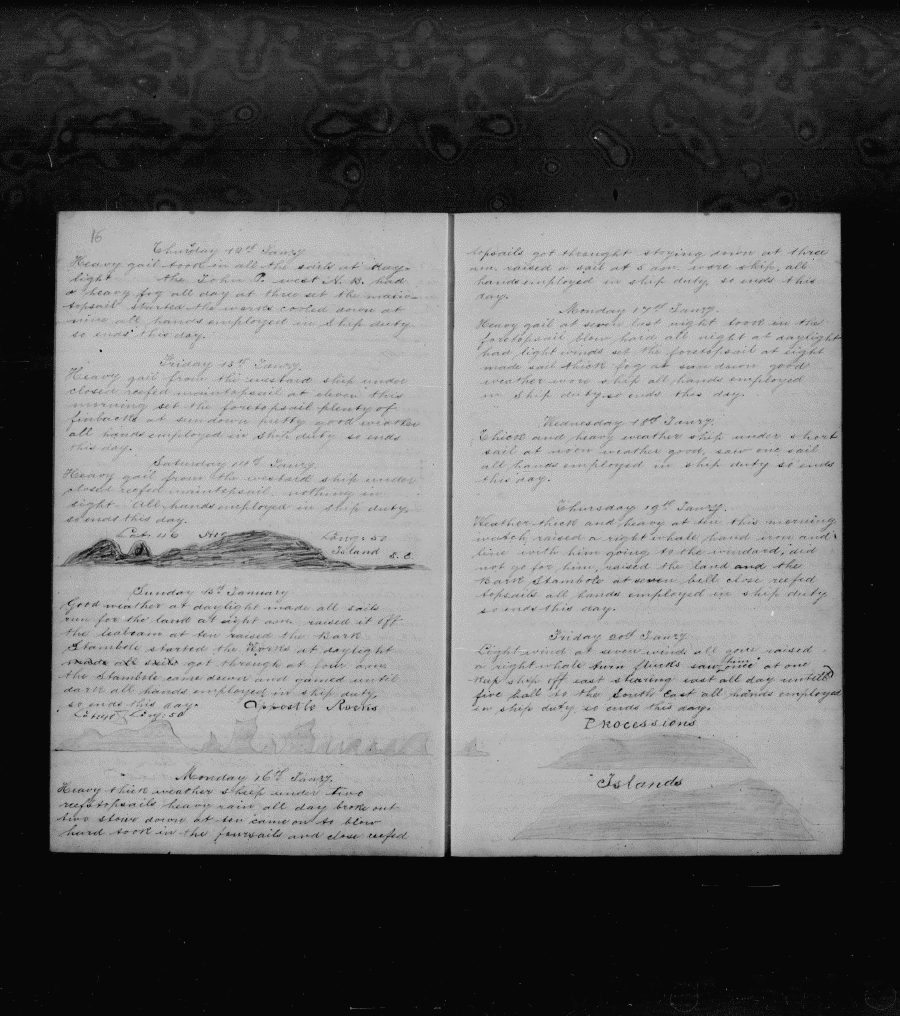 16
Thursday 12th Janry.
Heavy gail took in all the sails at day-
light the John P. west A. B. had
a heavy fog all day at three set the main-
topsail started the works cooled down at
nine all hands employed in Ship duty
so ends this day.
Friday 13th Janry.
Heavy gail from the westard ship under
closed reefed maintopsail at eleven this
morning set the foretopsail plenty of
finbacks at sundown pritty good weather
all hands employed in ship duty so ends
this day.
Saturday 14th Janry.
Heavy gail from the westard ship under
closed reefed maintopsail, nothing in
sight. All hands employed in ship duty,
so ends this day.
Lat. 46 Long. 50
Island S. E.
Sunday 15th January
Good weather at daylight made all sails
run for the land at eight a.m. raised it off
the leabeam at ten raised the Bark
Stambole started the Works at daylight
made all sails got through at four a.m.
the Stambole came down and gamed until
dark all hands employed in ship duty,
so ends this day. Oppostle Rocks
Long. 50
Monday 16th Janry.
Heavy thick weather ship under two
reefs topsails heavy rain all day broke out
two stour down at ten came on to blow
hard took in the foursails and close reefed
topsails got throught stoying down at three
a.m. raised a sail at 5 a.m. wore ship, all
hands employed in ship duty, so ends this
day.
Monday 17th Janry.
Heavy gail at seven last night took in the
foretopsail blew hard all night at daylight
had light winds set the foretopsail at eight
made sail thick fog at sun down good
weather wore ship all hands employed
in ship duty so ends this day.
Wednesday 18th Janry.
Thick and heavy weather ship under short
sail at noon weather good, saw one sail
all hands employed in ship duty so ends
this day.
Thursday 19th Janry.
Weather thick and heavy at ten this morning
watch raised a right whale hand iron and
line with him going to the windard, did
not go for him, raised the land and the
Bark Stambole at seven bell close reefed
topsails all hands employed in ship duty
so ends this day.
Friday 20th Janry.
Light wind at seven winds all gone raised
a right whale turn flucks saw him once at one
kep ship off east stearing east all day untill
five ball to the South East all hands employed
in ship duty so ends this day.
Processions
Islands